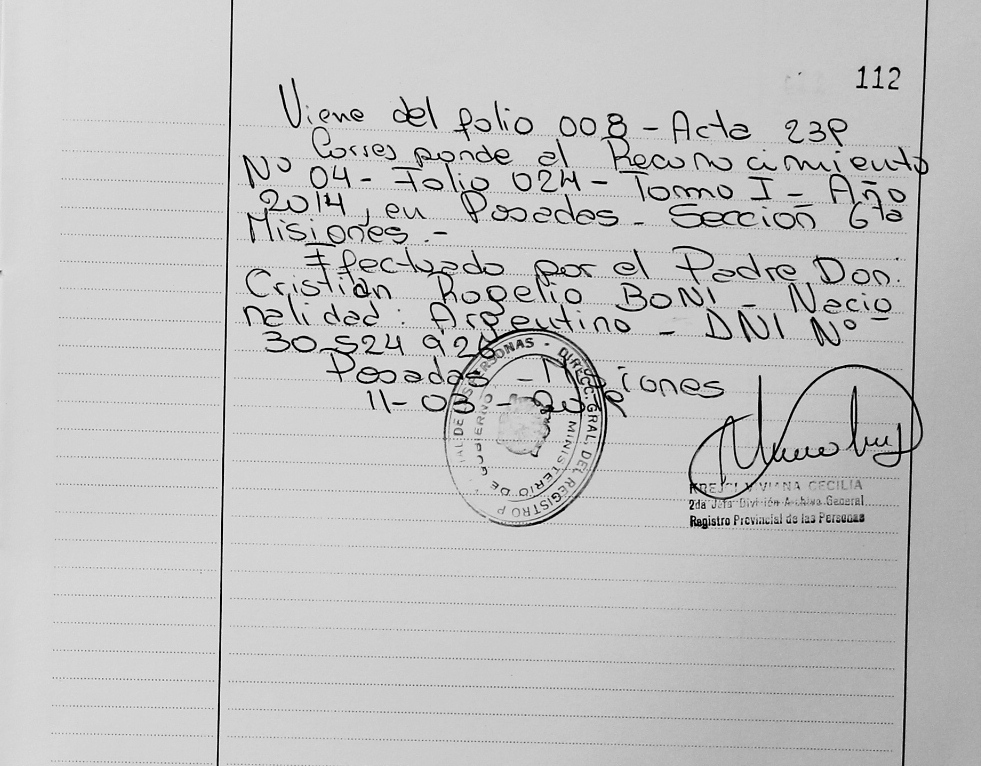 112
Viene del folio 008 - Acta 23P
Corresponde al Reconocimiento
Nº 04 - Folio 024 - Tomo I - Año
2014, en Posadas - Sección 6ta
Misiones.-
Efectuado por el Padre Don:
Cristian Rogelio BONI - Nacio
nalidad: Argentino - DNI Nº
30.524.926
Posadas - Misiones
11-03-
DIRECC. GRAL. DEL REGISTRO P
AL DE LAS PERSONAS -
MINISTERIO DE GOBIERNO
VIANA CECILIA
2da Jefa División Archivo General
Registro Provincial de las Personas